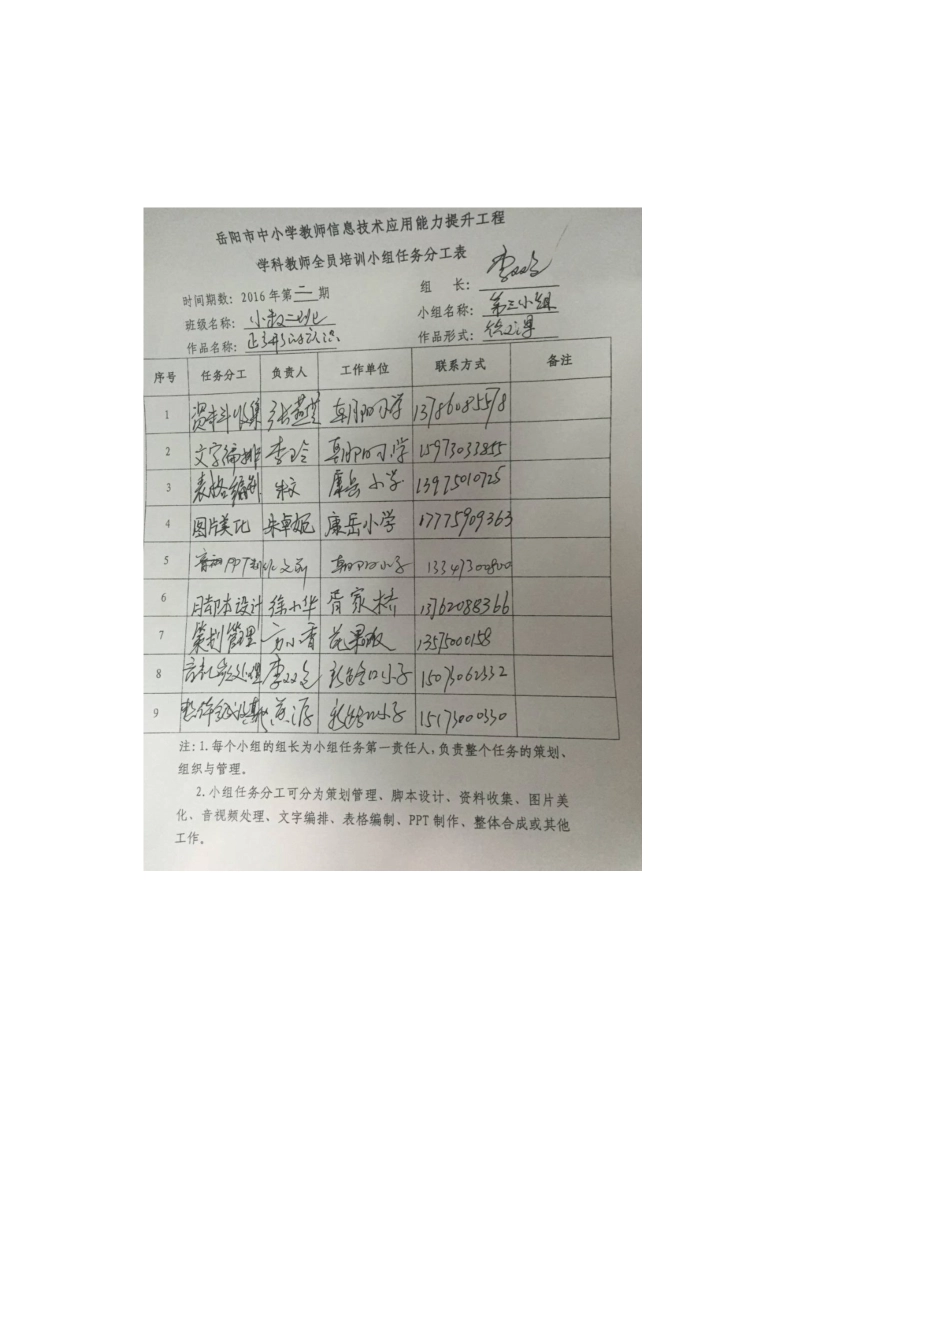 岳阳市中小学教师信息技术应用能力提升工程
学科教师全员培训小组任务分工表
时间期数：2016年第二期 组 长：李双全
班级名称：小教二班 小组名称：第三小组
作品名称：正方形的认识 作品形式：微课
序号 任务分工 负责人 工作单位 联系方式 备注
1 资料收集 张燕 朝阳小学 13786085578
2 文字编排 李玲 朝阳小学 15973033855
3 表格编制 朱文 康岳小学 13975010725
4 图片美化 朱卓妮 康岳小学 17775909363
5 PPT制作 朝阳小学 13347300800
6 脚本设计 徐小华 胥家桥 13762088366
7 策划管理 方小香 花果畈 13575000158
8 音视频处理 李双全 小学 15073062332
9 小学 15173000330
注：1.每个小组的组长为小组任务第一责任人，负责整个任务的策划、
组织与管理。
2.小组任务分工可分为策划管理、脚本设计、资料收集、图片美
化、音视频处理、文字编排、表格编制、PPT制作、整体合成或其他
工作。